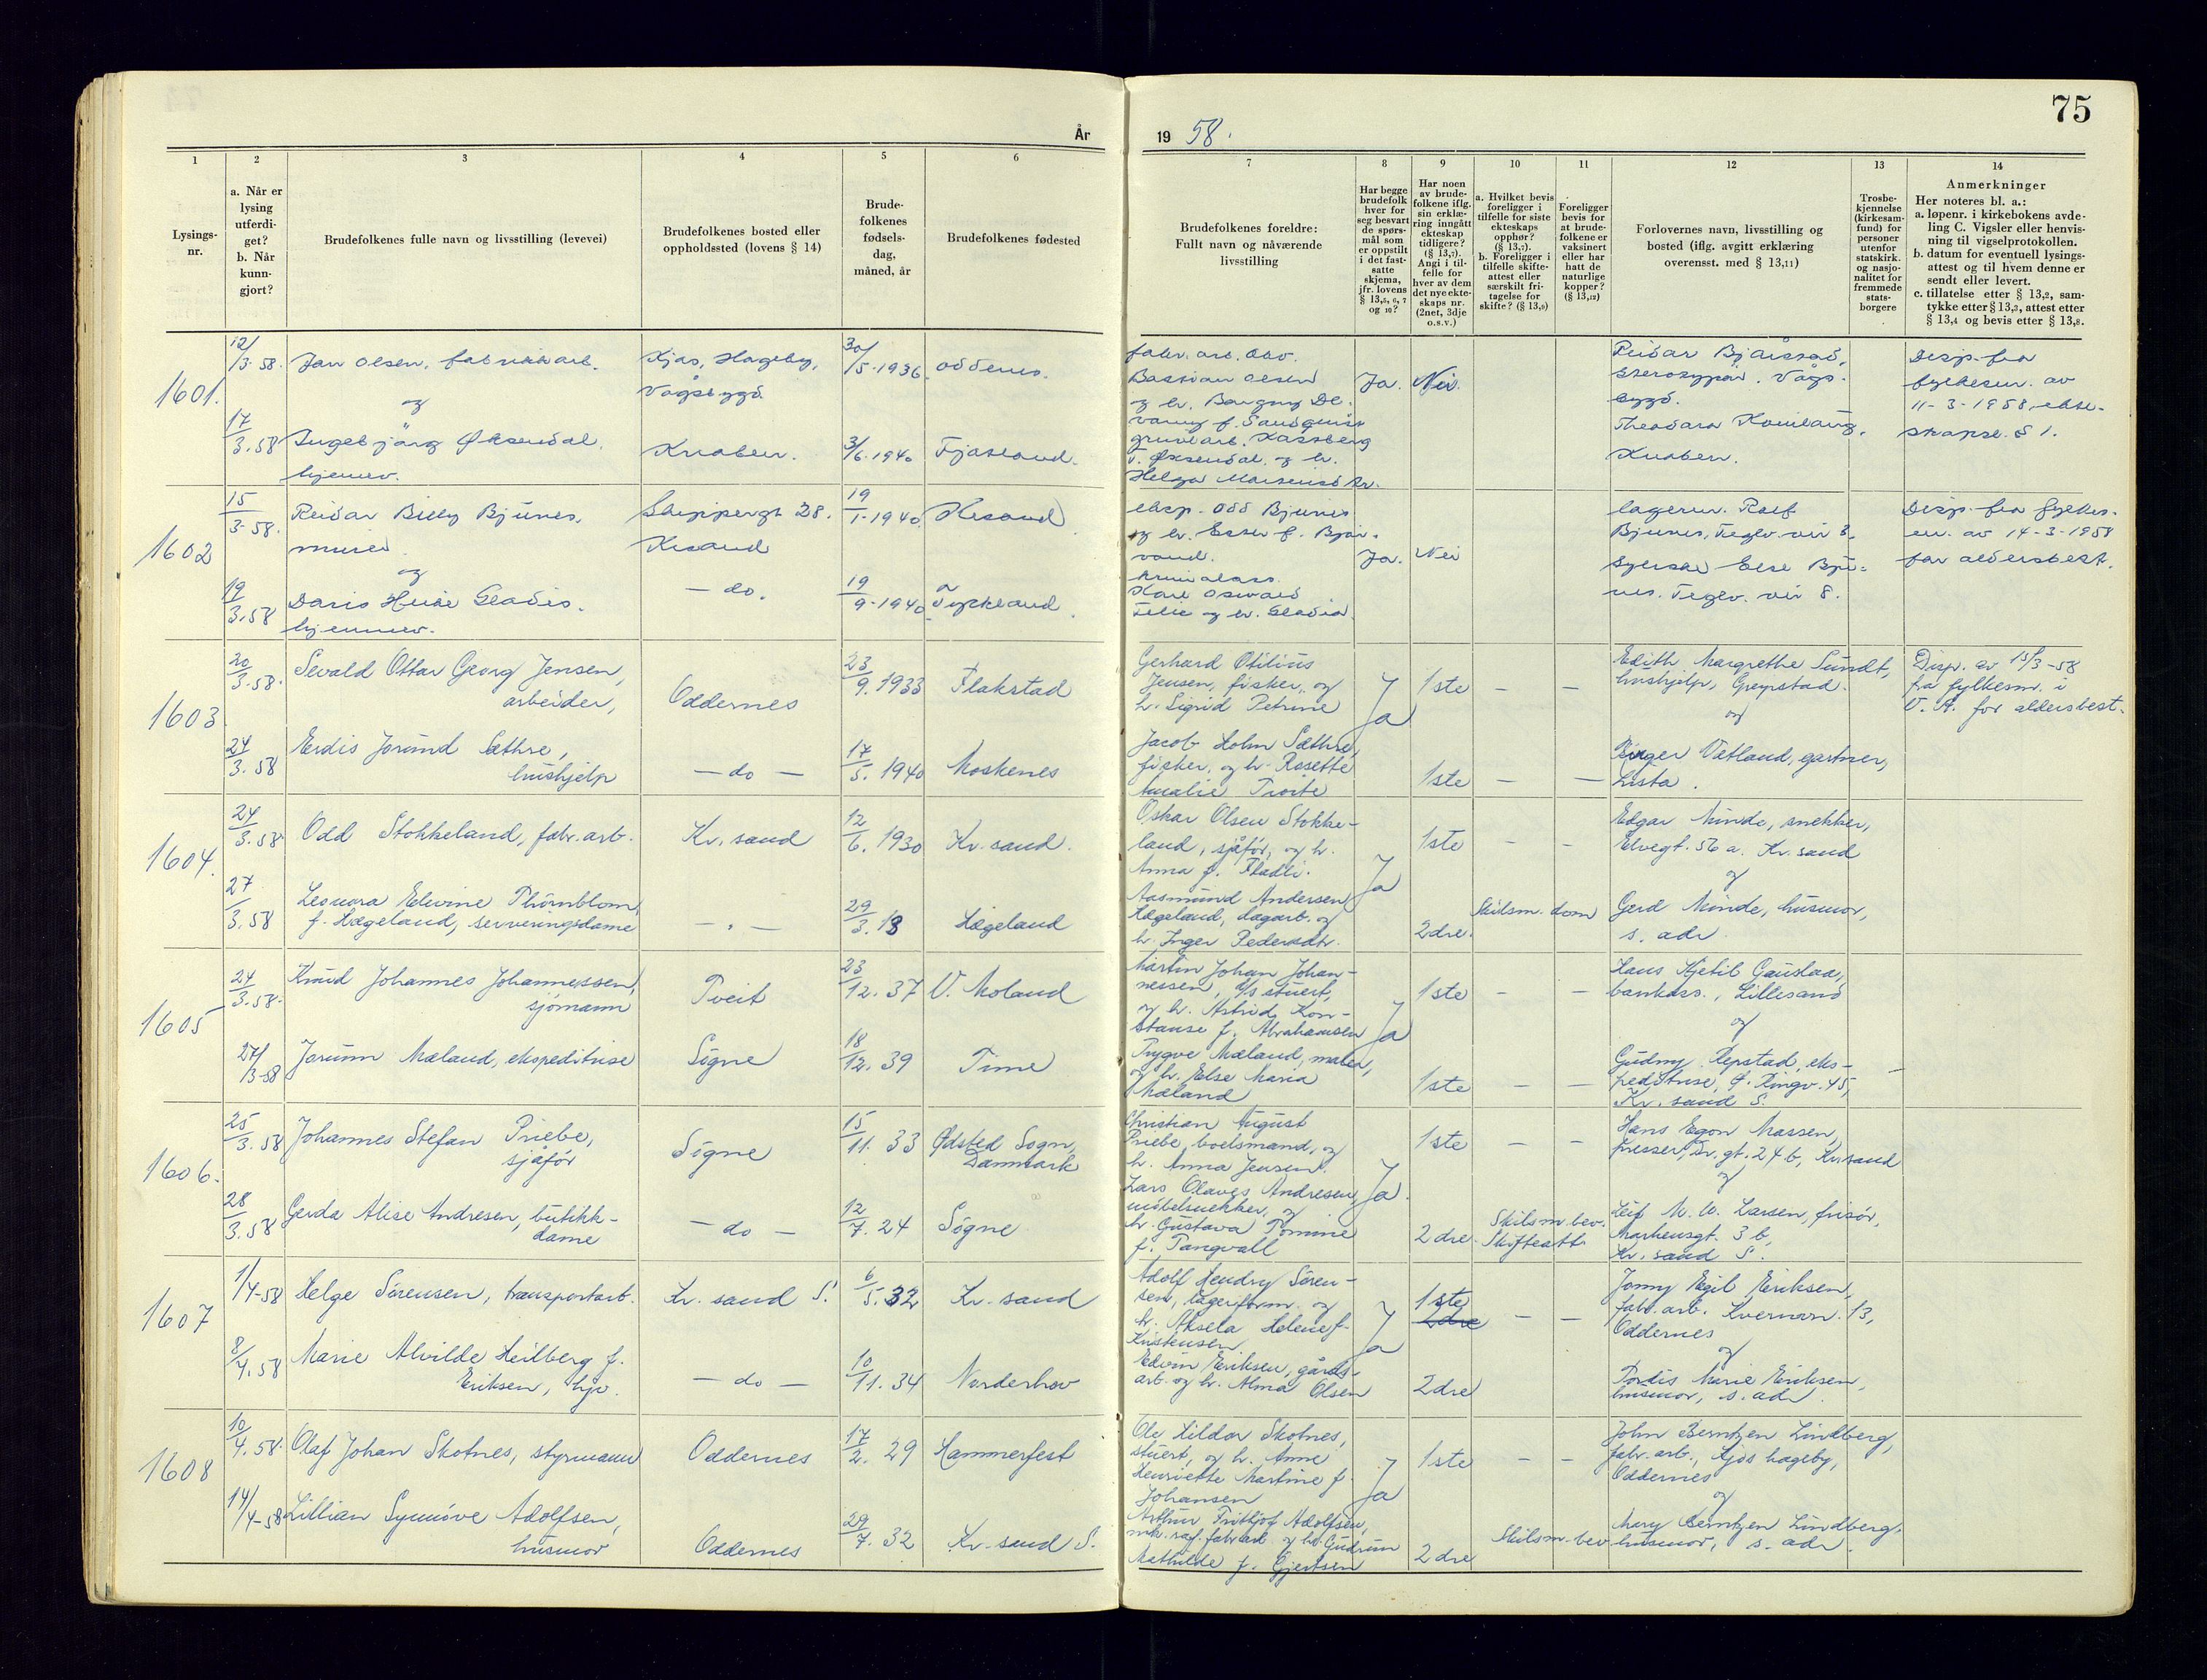 75
År
19 58.
1
2
3
4
5
6
7
8
9
10
11
12
13
14
Lysings-
nr.
a. Når er
lysing
utferdi-
get?
b. Når
kunn-
gjort?
Brudefolkenes fulle navn og livsstilling (levevei)
Brudefolkenes bosted eller
oppholdssted (lovens § 14)
Brude-
folkenes
fødsels-
dag,
måned, år
Brudefolkenes fødested
Brudefolkenes foreldre:
Fullt navn og nåværende
livsstilling
Har begge
brudefolk
hver for
seg besvart
de spørs-
mål som
er oppstilt
i det fast-
satte
skjema,
jfr. lovens
§ 13,5, 6, 7
og 10?
Har noen
av brude-
folkene iflg.
sin erklæ-
ring inngått
ekteskap
tidligere?
(§ 13,7).
Angi i til-
felle for
hver av dem
det nye ekte-
skaps nr.
(2net, 3dje
o.s.v.)
a. Hvilket bevis
foreligger i
tilfelle for siste
ekteskaps
opphør?
(§ 13,7).
b. Foreligger i
tilfelle skifte-
attest eller
særskilt fri-
tagelse for
skifte? (§ 13,9)
Foreligger
bevis for
at brude-
folkene er
vaksinert
eller har
hatt de
naturlige
kopper?
(§ 13,12)
Forlovernes navn, livsstilling og
bosted (iflg. avgitt erklæring
overensst. med § 13,11)
Trosbe-
kjennelse
(kirkesam-
fund) for
personer
utenfor
statskirk.
og nasjo-
nalitet for
fremmede
stats-
borgere
Anmerkninger
Her noteres bl. a.:
a. løpenr. i kirkebokens avde-
ling C. Vigsler eller henvis-
ning til vigselprotokollen.
b. datum for eventuell lysings-
attest og til hvem denne er
sendt eller levert.
c. tillatelse etter § 13,2, sam-
tykke etter § 13,3, attest etter
§ 13,4 og bevis etter § 13,8.
1601.
12/3-58.
Jan Olsen, fabrikkarb.
og
Kjos, Hageby,
Vågsbygd.
30/5-1936.
Oddernes.
fabr. arb.
Bastian Olsen
og h. Borgny
f. Sandquist
Ja.
Nei.
Reidar
Vågs-
bygd.
Disp. fra
fylkesm. av
11-3-1958, ekte-
skapsl. § 1.
17/3.58
Ingebjørg Øksendal.
hjemmev.
Knaben.
3/6-1940
Fjotland.
gruvearb.
T. Øksendal og h.
Helga
Theodora
Knaben.
1602
15/3-58.
Reidar Billy Bjunes,
murer.
og
Skippergt 28.
Krsand
19/1-1940.
Krsand
eksp. Odd Bjunes
og h. Ester f. Bjor-
vand.
Ja.
Nei
lagerm. Rolf
Bjunes, Teglv. vei 8.
Disp. fra fylkes-
m. av 14-3-1958
for aldersbest.
19/3.58
Doris
hjemmev.
- do.
19/9-1940
Tyskland.
Karl Oswald
og h.
Else Bju-
nes. Teglv. vei 8.
1603
20/3.58.
Sevald Ottar Georg Jensen,
arbeider,
Oddernes
23/9.1933
Flakstad
Gerhard Otilius
Jensen, fisker, og
h. Sigrid Petrine
Ja
1ste
-
-
Edith Margrethe Sundt,
hushjelp, Greipstad.
og
Disp. av 15/3-58
fra fylkesm. i
V. A. for aldersbest.
24/3.58
Erdis Jorund Sæthre,
hushjelp
- do -
17/5.1940
Moskenes
Jacob Holm Sæthre,
fisker, og h. Rosette
Amalie
1ste
-
-
Birger Vatland, gartner,
Lista.
1604.
24/3.58
Odd Stokkeland, fabr. arb.
Kr. sand
12/6.1930
Kr. sand.
Oskar Olsen Stokke-
land, sjåfør, og h.
Anna f. Fladli.
Ja
1ste
-
-
Edgar Minde, snekker,
Elvegt. 56 a. Kr. sand
og
27/3.58
Leonora Elevine Thörnblom,
f. Hægeland, serveringsdame
- " -
29/3.18
Hægeland
Aasmund Andersen
Hægeland, dagarb. og
h. Inger Pedersdtr.
2dre.
Skilsm. dom
Gerd Minde, husmor,
s. adr.
1605
24/3.58.
Knud Johannes Johannessen,
sjömann
Tveit
23/12.37
V. Moland
Martin Johan Johan-
nessen, stuert,
og h. Astrid Kon-
stanse f. Abrahamsen
Ja
1ste
-
-
Hans Kjetil Gauslaa,
bankass., Lillesand
og
27/3-58
Jorunn Mæland, ekspeditrise
Sögne
18/12.39
Time
Trygve Mæland, maler,
og h. Else Maria
Mæland
1ste
-
-
Gudny Repstad, eks-
peditrise, Ø. Ringv. 45,
Kr. sand S.
1606.
25/3.58
Johannes Stefan Priebe,
sjåför
Sögne
15/11.33
Ødsted Sogn,
Danmark
Christian August
Priebe, boelsmand, og
h. Anna Jensen.
Ja.
1ste
-
-
Hans Egon Massen,
presser, Dr. gt. 24 b, Kr.sand
og
28/3.58
Gerda Alise Andresen, butikk-
dame
- do -
12/7.24
Sögne
Lars Olaves Andresen,
möbelsnekker, og
h. Gustava Tomine
f. Tangvall
2dre.
Skilsm. bev.
Skifteatt.
Leif M. W. Larsen, frisör,
Markensgt. 3 b,
Kr. sand S.
1607
1/4-58
Helge Sörensen, transportarb.
Kr. sand S.
6/5.32
Kr. sand
Adolf Hendry Sören-
sen, lagerform. og
h. Aksela Helene f.
Kristensen
Ja
1ste
2dre
-
-
Jonny Egil Eriksen,
fabr. arb. Kvernvn. 13,
Oddernes
og
8/4.58
Marie Alvilde Heilberg f.
Eriksen, hjv.
- do -
10/11.34
Norderhov
Edvin Eriksen, gårds-
arb. og h. Alma Olsen
2dre
Tordis Marie Eriksen,
husmor, s. adr.
1608
10/4.58.
Olaf Johan Skotnes, styrmann
Oddernes
17/2.29
Hammerfest
Ole Hildor Skotnes,
stuert, og h. Anne
Henriette Martine f.
Johansen
Ja
1ste
-
-
John Berntzen Lindberg,
fabr. arb., Kjos hageby,
Oddernes
og
14/4-58
Lillian Synnöve Adolfsen,
husmor
Oddernes
29/7.32
Kr. sand S.
Arthur Fritjof Adolfsen,
nik. raf. fabr. arb. og h. Gudrun
Mathilde f. Gjertsen
2dre
Skilsm. bev
Mary Berntzen Lindberg,
husmor, s. adr.